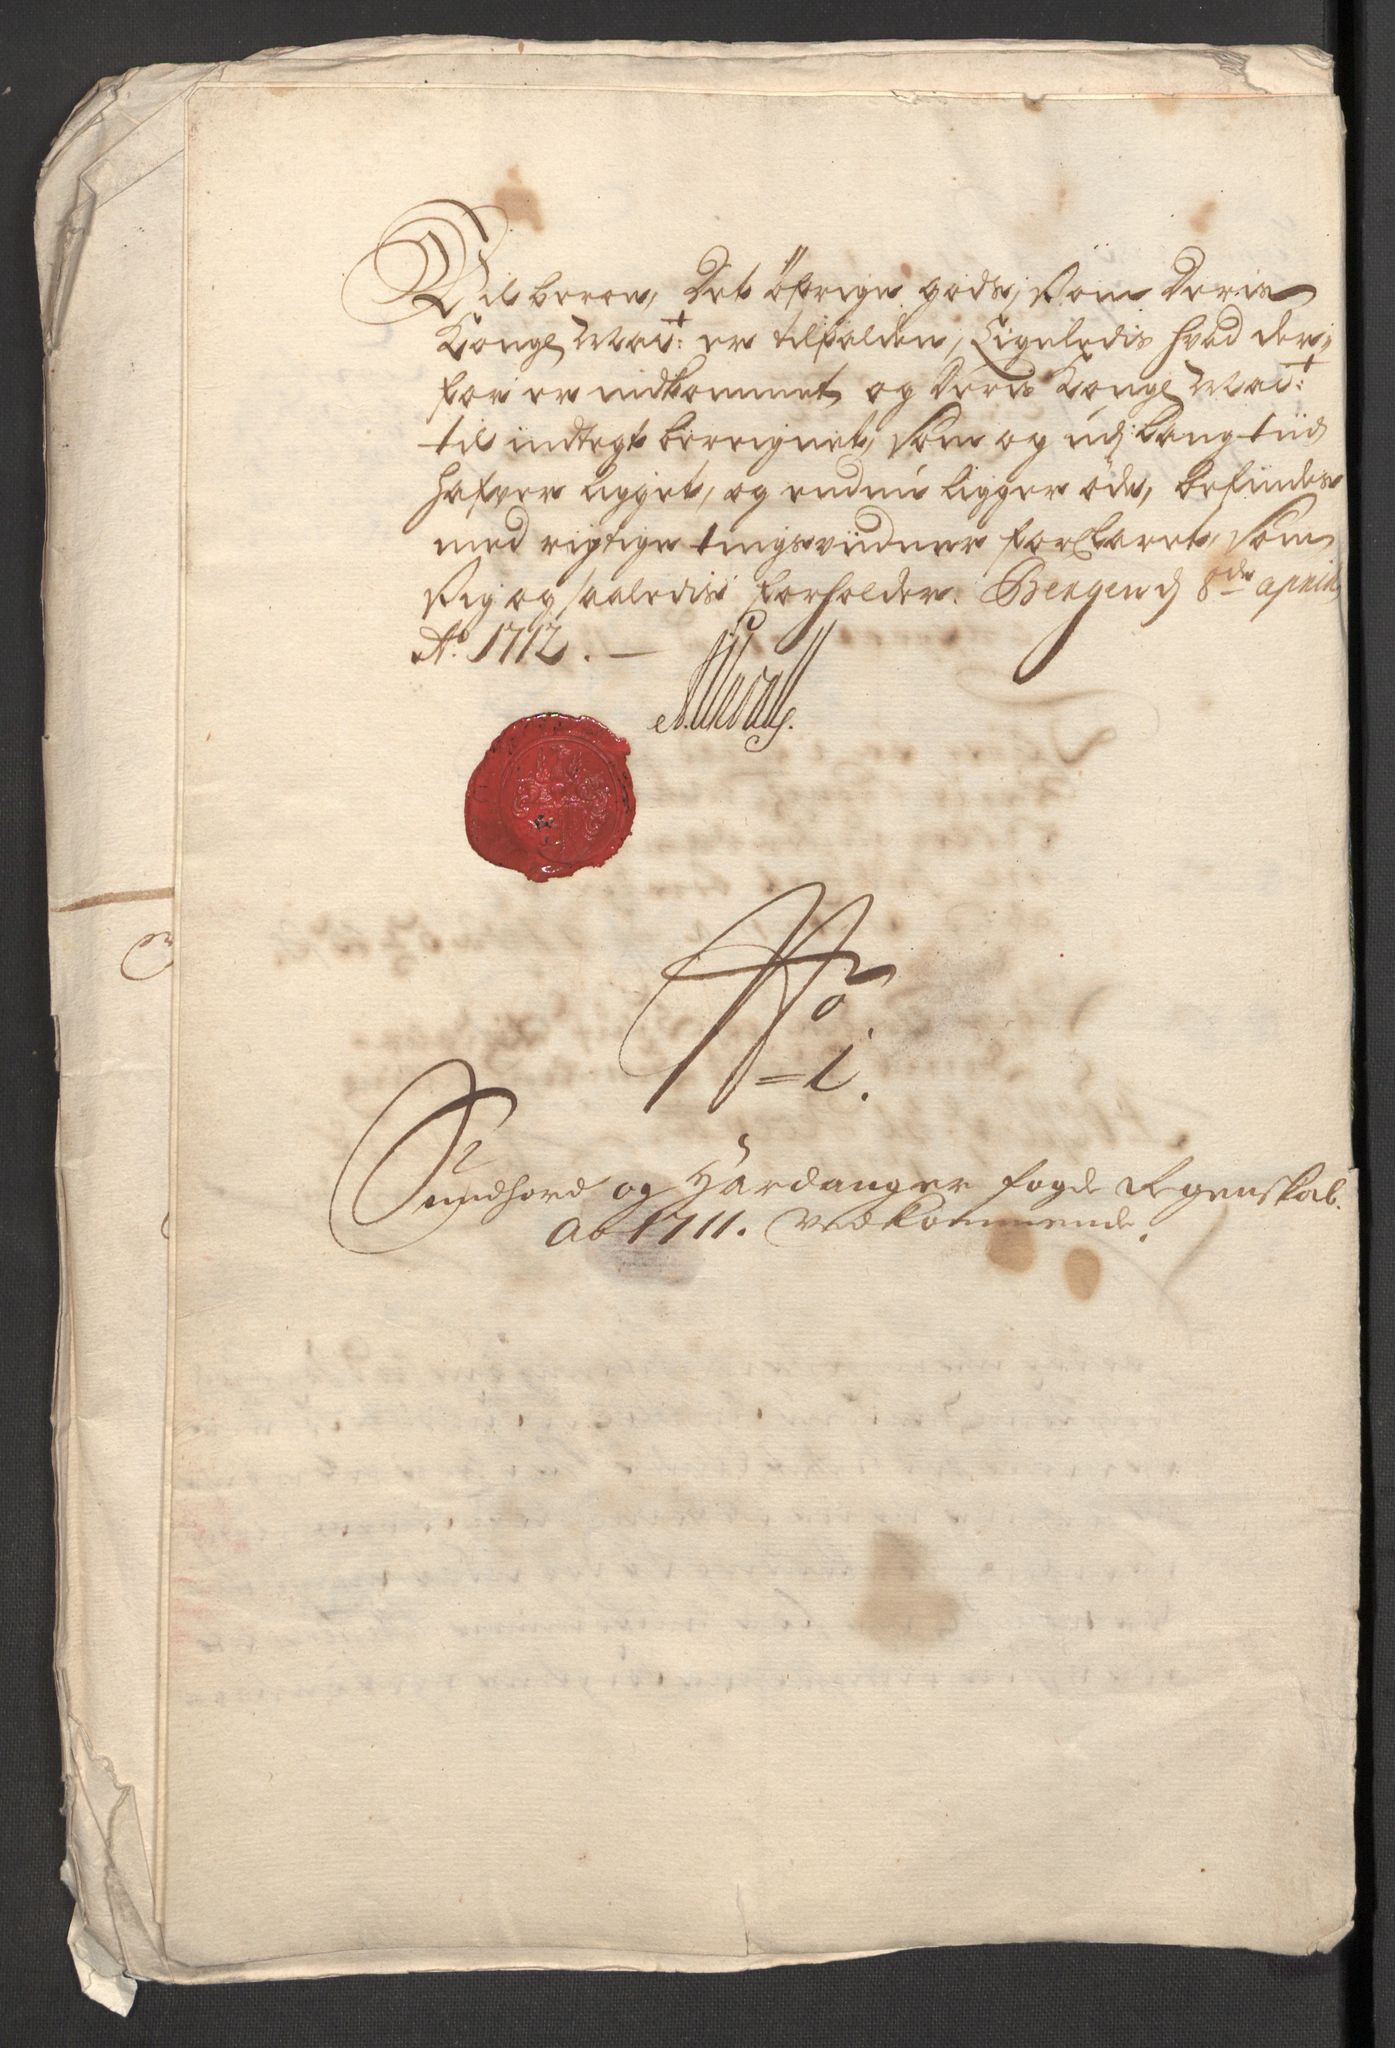 Vilberon, Det öfrige gods, Som Deris
Kongl Maÿ:t er tilfalden, Ligeledis hvad der,,
for er indkommet og Deris Kongl Maÿ:t
til indtegt berregnet, Som og udj lang tiid
hafver ligget, og endnu ligger öde, befindes
med rigtige tingsvidner forklaret, Som
Sig og saaledis forholder. Bergen dj 8de aprilj
Ao. 1712. —
No
= 1.
Sundhord og Hardanger fogde Regenskab.
Ao 1711. vedkommende.